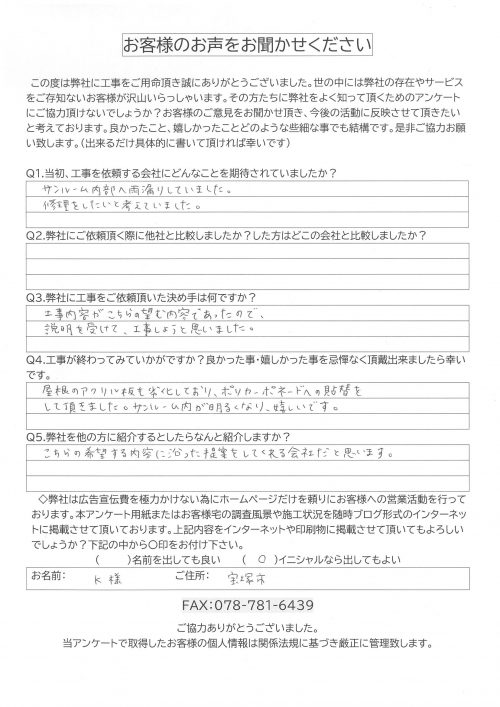 お客様のお声をお聞かせください
この度は弊社に工事をご用命頂き誠にありがとうございました。世の中には弊社の存在やサービス
をご存知ないお客様が沢山いらっしゃいます。その方たちに弊社をよく知って頂くためのアンケート
にご協力頂けないでしょうか？お客様のご意見をお聞かせ頂き、今後の活動に反映させて頂きたい
と考えております。良かったこと、嬉しかったことどのような些細な事でも結構です。是非ご協力お願
い致します。（出来るだけ具体的に書いて頂ければ幸いです）
Q1.当初、工事を依頼する会社にどんなことを期待されていましたか？
サンルーム内部へ雨漏りしていました。
修理をしたいと考えていました。
Q2.弊社にご依頼頂く際に他社と比較しましたか？した方はどこの会社と比較しましたか？
Q3.弊社に工事をご依頼頂いた決め手は何ですか？
工事内容がこちらの望む内容であったので、
説明を受けて、工事しようと思いました。
Q4.工事が終わってみていかがですか？良かった事・嬉しかった事を忌憚なく頂戴出来ましたら幸い
です。
屋根のアクリル板も劣化しており、ポリカーボネードへの貼替を
して頂きました。サンルーム内が明るくなり、嬉しいです。
Q5.弊社を他の方に紹介するとしたらなんと紹介しますか？
こちらの希望する内容に沿った提案をしてくれる会社だと思います。
◇弊社は広告宣伝費を極力かけない為にホームページだけを頼りにお客様への営業活動を行って
おります。本アンケート用紙またはお客様宅の調査風景や施工状況を随時ブログ形式のインターネッ
トに掲載させて頂いております。上記内容をインターネットや印刷物に掲載させて頂いてもよろしい
でしょうか？下記の中から〇印をお付け下さい。
（　　）名前を出しても良い　（ ○ ）イニシャルなら出してもよい
お名前：　K 様　ご住所：　宝塚市
FAX:078-781-6439
ご協力ありがとうございました。
当アンケートで取得したお客様の個人情報は関係法規に基づき厳正に管理致します。